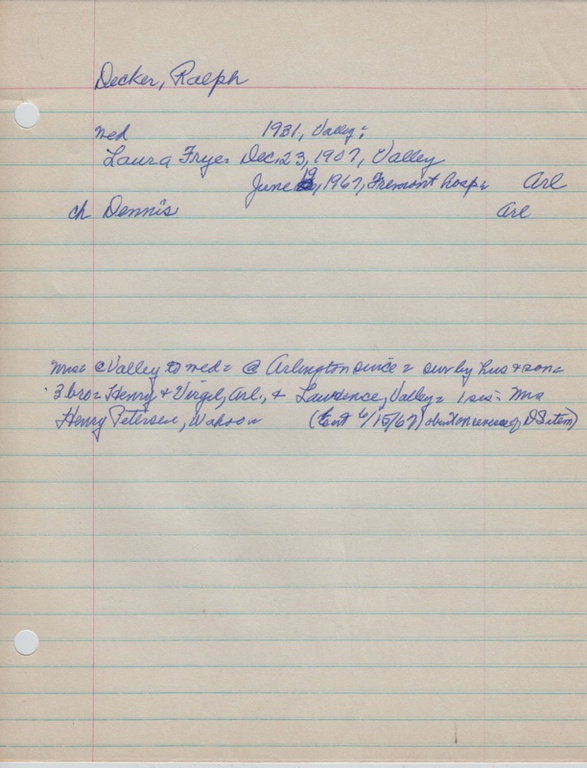 Decker, Ralph
med 1931, Valley:
Laura Frye: Dec. 23, 1907, Valley
June 19, 1967, Fremont hosp: Arl
ch Dennis Arl
Mrs= @ Valley to med= @ Arlington since= surv by hus & son=
3 bro= Henry & Virgil, Arl., & Lawrence, Valley= 1 sis= Mrs
Henry Petersen, Wahoo (Ent 6/15/67) obit on reverse of DS item)